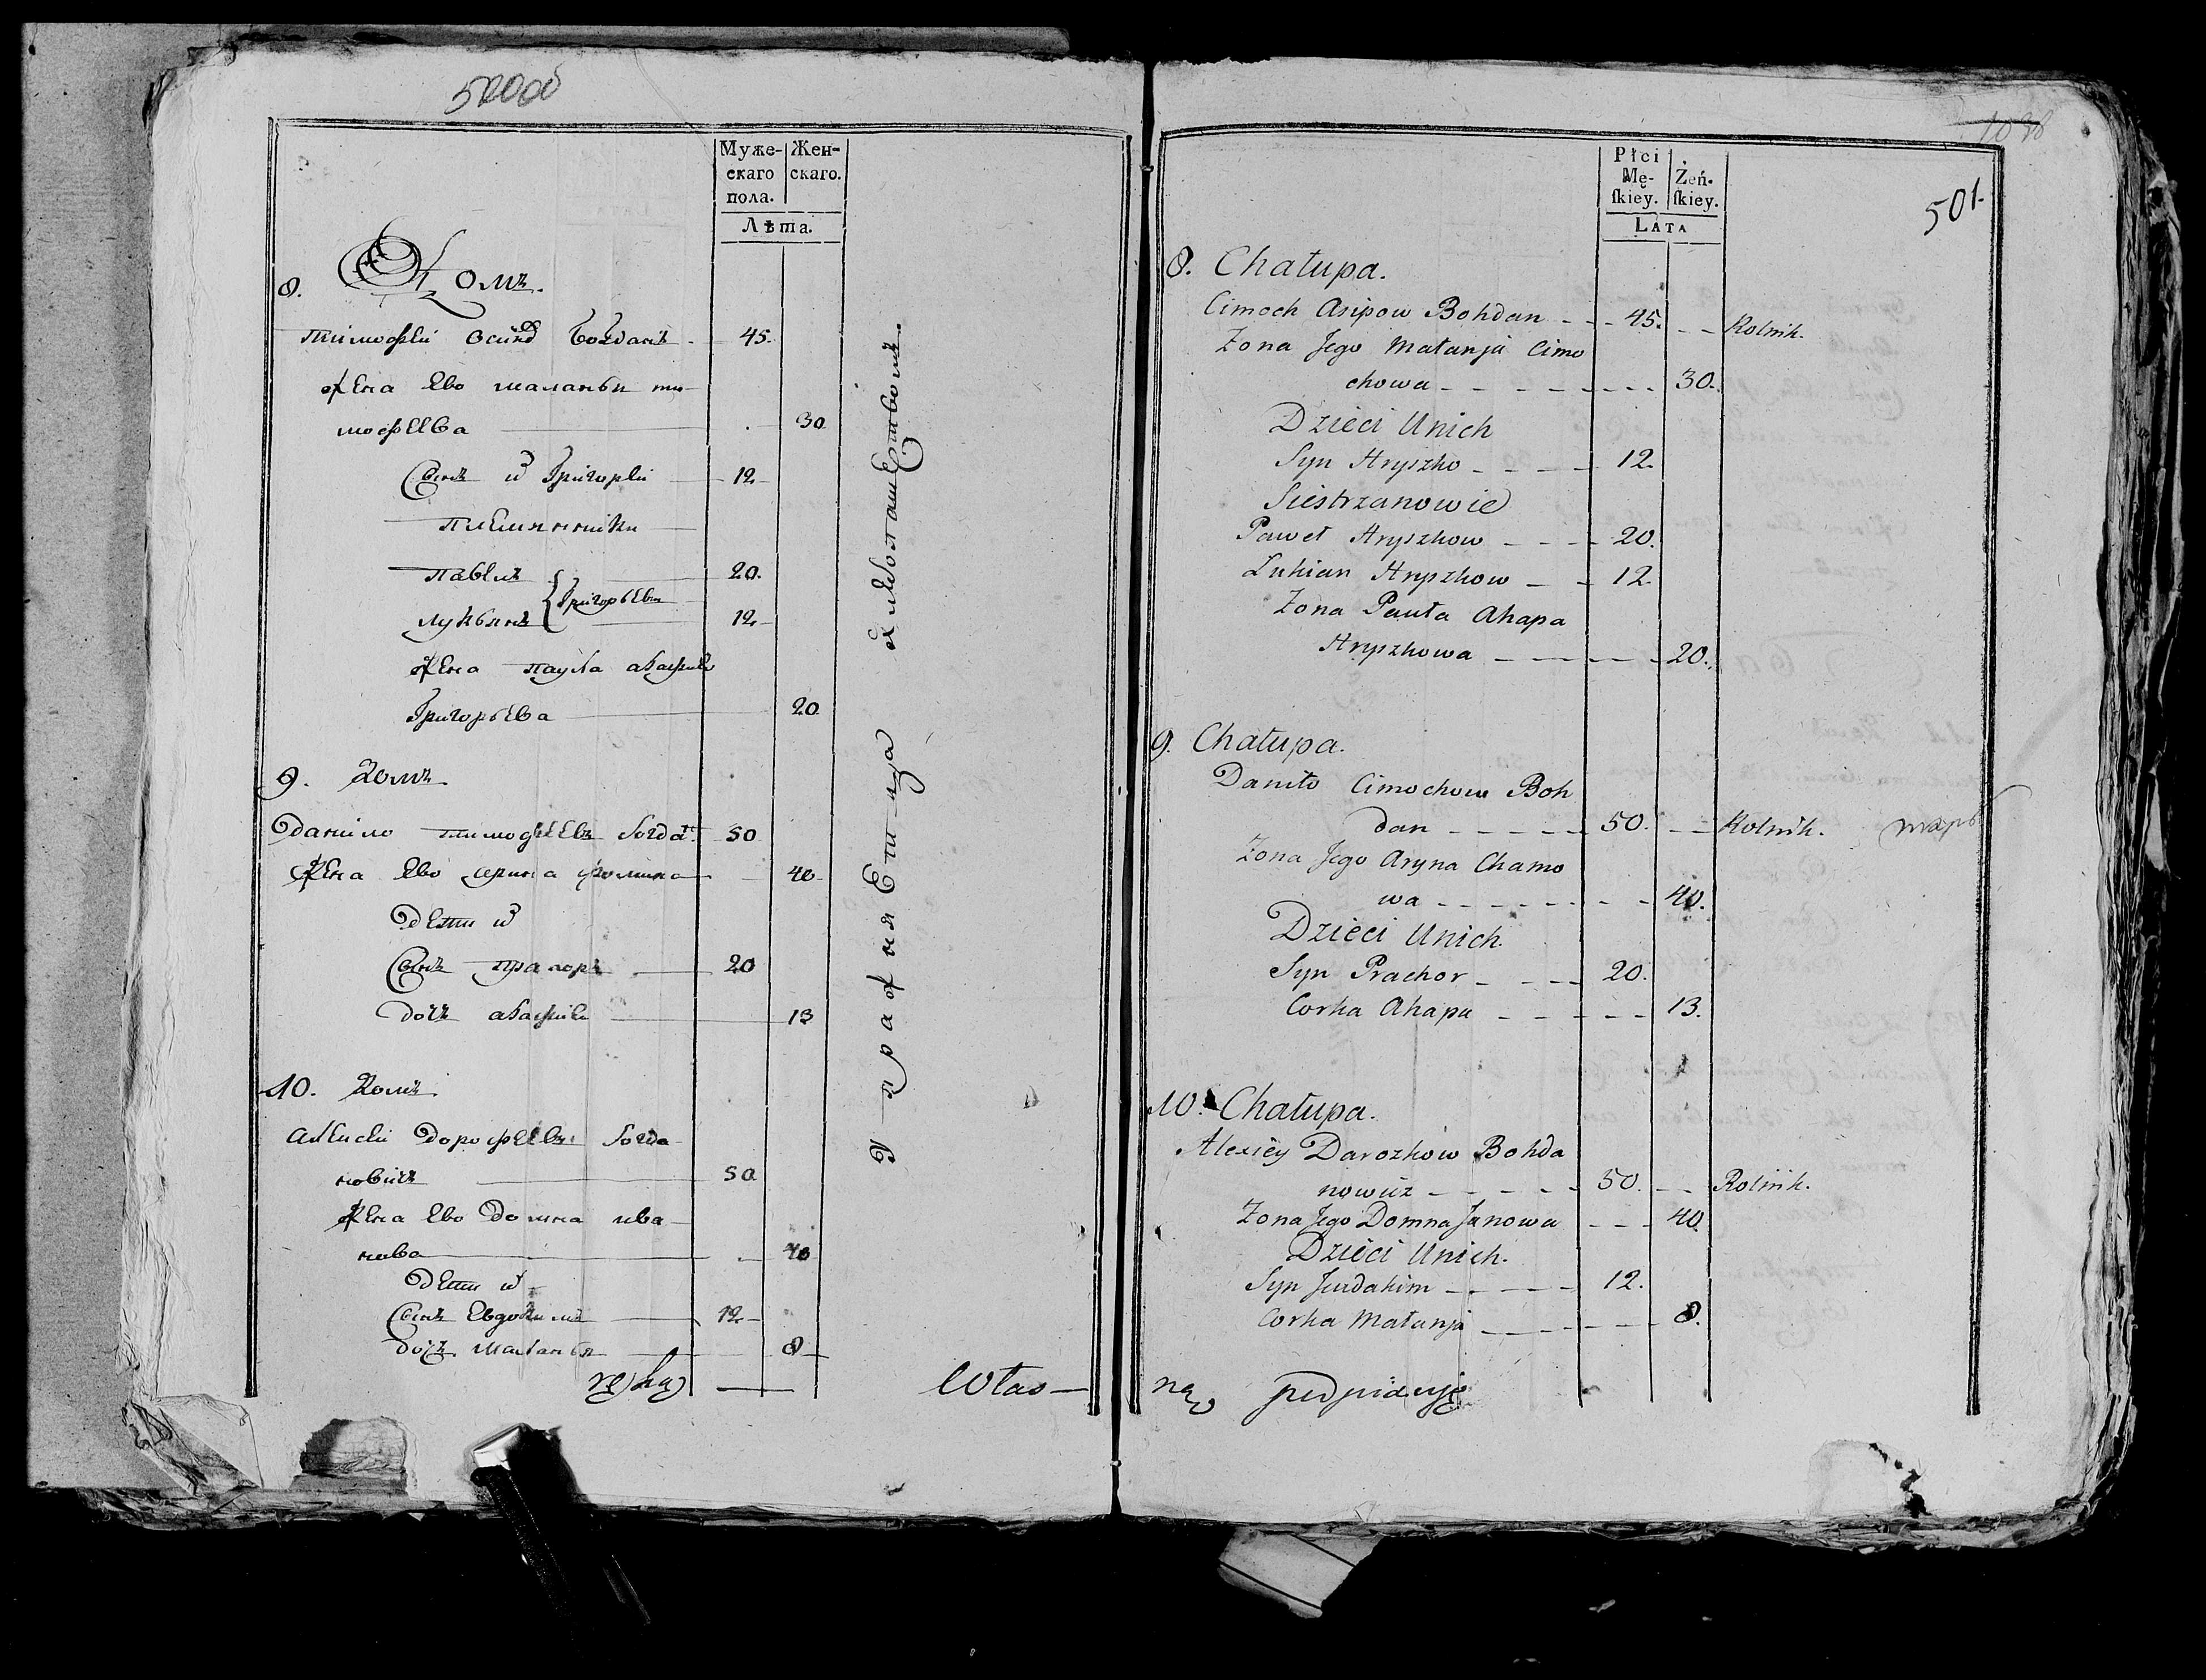 500об
Муже-
скаго
пола.
Жен-
скаго.
Лѣта.
8. Домъ.
тимофей Осипо Богданъ 45.
жена Ево маланьи ти
мофеева 30
Сынъ и Григорей 12
племянники
павелъ 20.
Григорьевы
лукьянъ 12
жена паула агафия
Григорьева 20
9. Домъ
Данило тимофеевъ Богда 50
Жена Ево арина фомина 40
дети и
Сынъ прахоръ 20
дочь агафия 13
10. Домъ
Алексей дорофеевъ Богда
новичъ 50
жена Ево Домна ива
нова 40
дети и
Сынъ Евдокимъ 12
дочь маланья 8
Упражняется хлебопашествомъ.
ręką włas
1098
501.
Płci
Mę-
ſkiey.
Żeń-
ſkiey.
LATA
8. Chałupa.
Cimoch Asipow Bohdan - - - 45. - - Rolnik.
Zona Jego Małanja Cimo
chowa - - - - - - - - 30.
Dzieci Unich
Syn Hryszko - - - - 12.
Siestrzanowie
Paweł Hryszkow - - - 20.
Łukian Hryszkow - - 12.
Zona Pauła Ahapa
Hryszkowa - - - - - 20.
9. Chałupa.
Daniło Cimochow Boh
dan - - - - - 50. - - Rolnik.
Zona Jego Aryna Chamo
wa - - - - - - - - 40.
Dzieci Unich.
Syn Prachor - - - - 20.
Corka Ahapa - - - - - 13.
10. Chałupa.
Alexiey Darozkow Bohda
nowicz - - - - - 50. - - Rolnik.
Zona Jego Domna Janowa - - - 40.
Dzieci Unich.
Syn Jeudakim - - - - - 12.
Corka Małanja - - - - - - - 8.
ną podpisuję